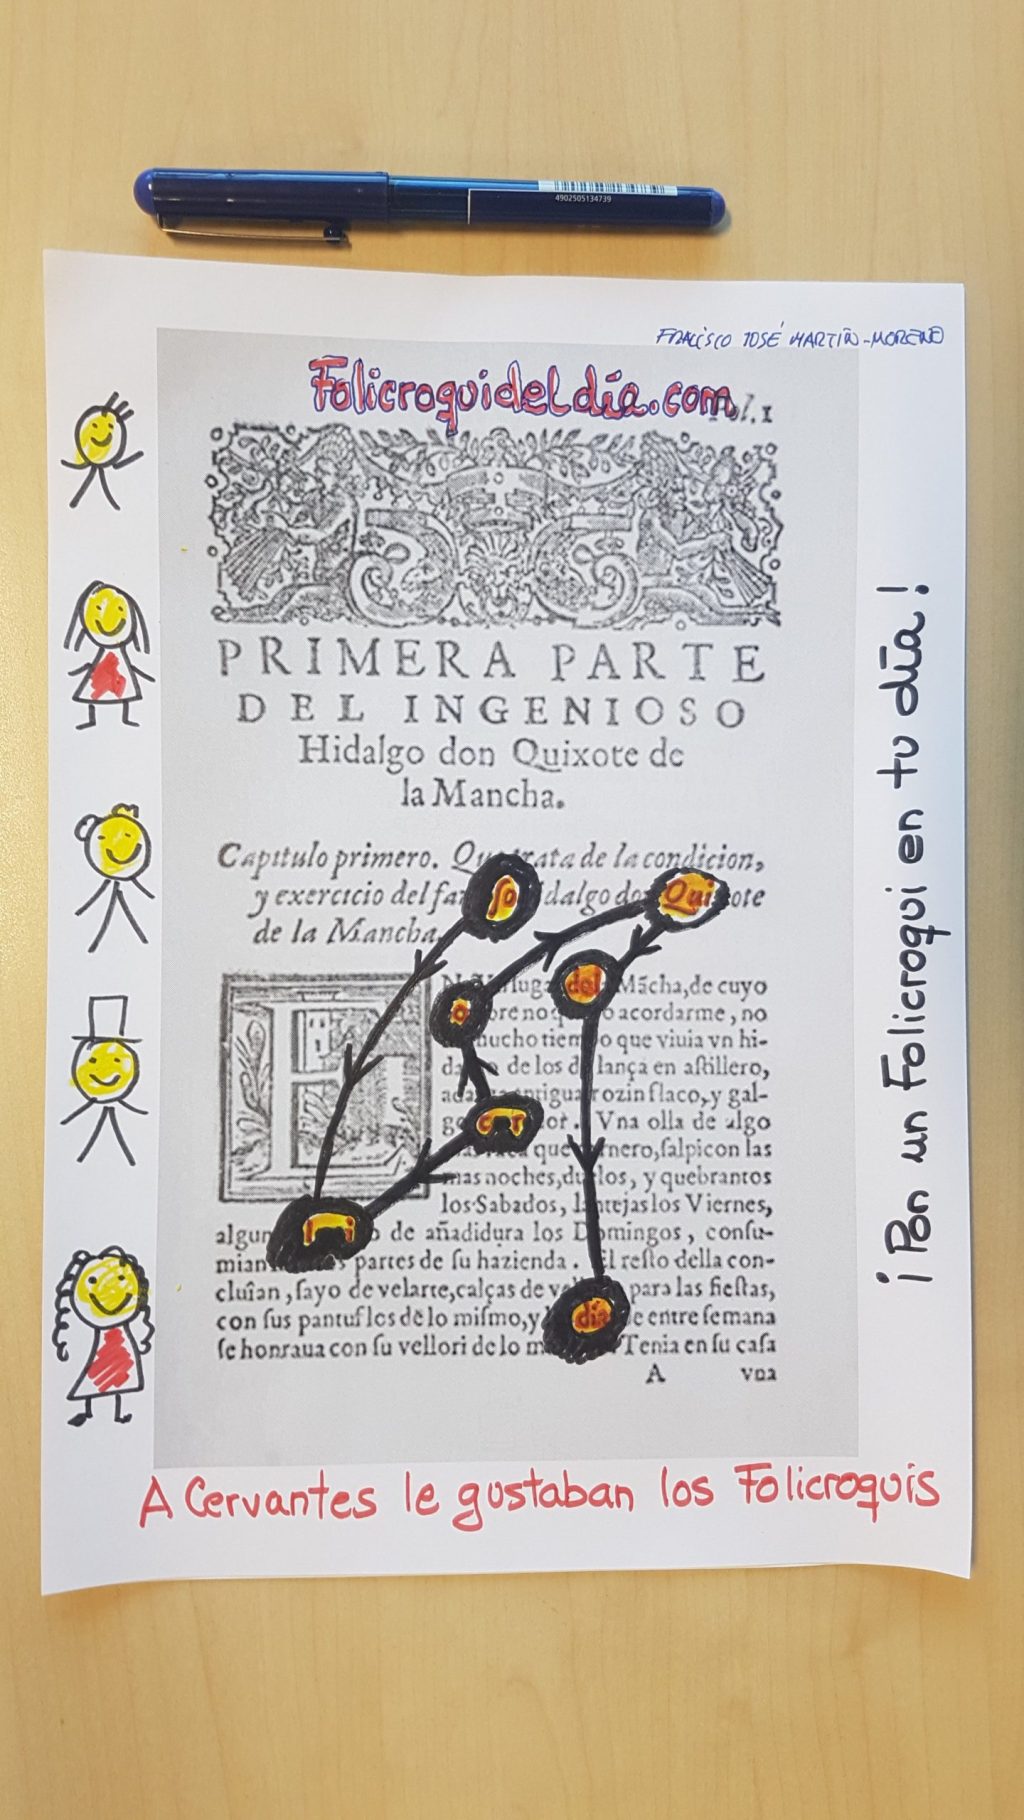 4902505134739
FRANCISCO JOSÉ MARTÍN-MORENO
Folicroquideldía.com
Fol.1
PRIMERA PARTE
DEL INGENIOSO
Hidalgo don Quixote de
la Mancha.
Capitulo primero. Que trata de la condicion,
y exercicio del fa fo idalgo don Quixote
de la Mancha.
lugar del Mãcha, de cuyo
bre no q o acordarme, no
mucho tiempo que viuia vn hi-
de los de lança en aſtillero,
antigua rozin flaco, y gal-
go cor or. Vna olla de algo
que rnero, ſalpicon las
mas noches, duelos, y quebrantos
los Sabados, lantejas los Viernes,
algun li o de añadidura los Domingos, conſu-
mian partes de ſu hazienda. El reſto della con-
cluîan, ſayo de velarte, calças de ve para las fieſtas,
con ſus pantuflos dẽ lo miſmo, y día de entre ſemana
ſe honraua con ſu vellori de lo m Tenia en ſu caſa
A vna
¡Pon un Folicroqui en tu día!
A Cervantes le gustaban los Folicroquis